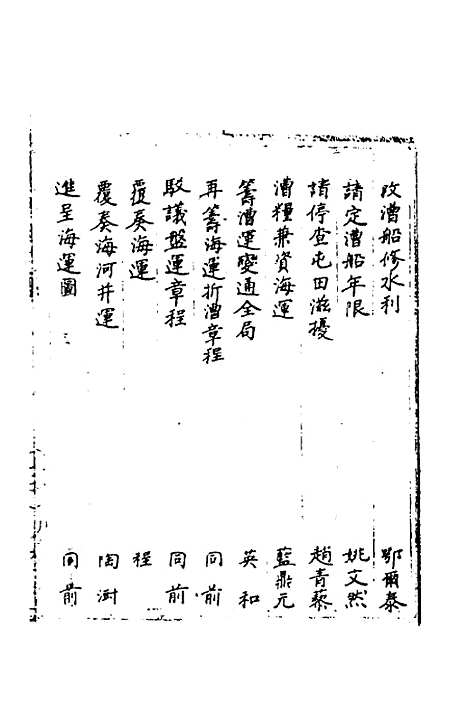 改漕船修水利 鄂爾泰
請定漕船年限 姚文然
請停查屯田滋擾 趙青藜
漕糧兼資海運 藍鼎元
籌漕運變通全局 英和
再籌海運折漕章程 同前
駁議盤運章程 同前
覆奏海運 程
覆奏海河并運 陶澍
進呈海運圖 同前